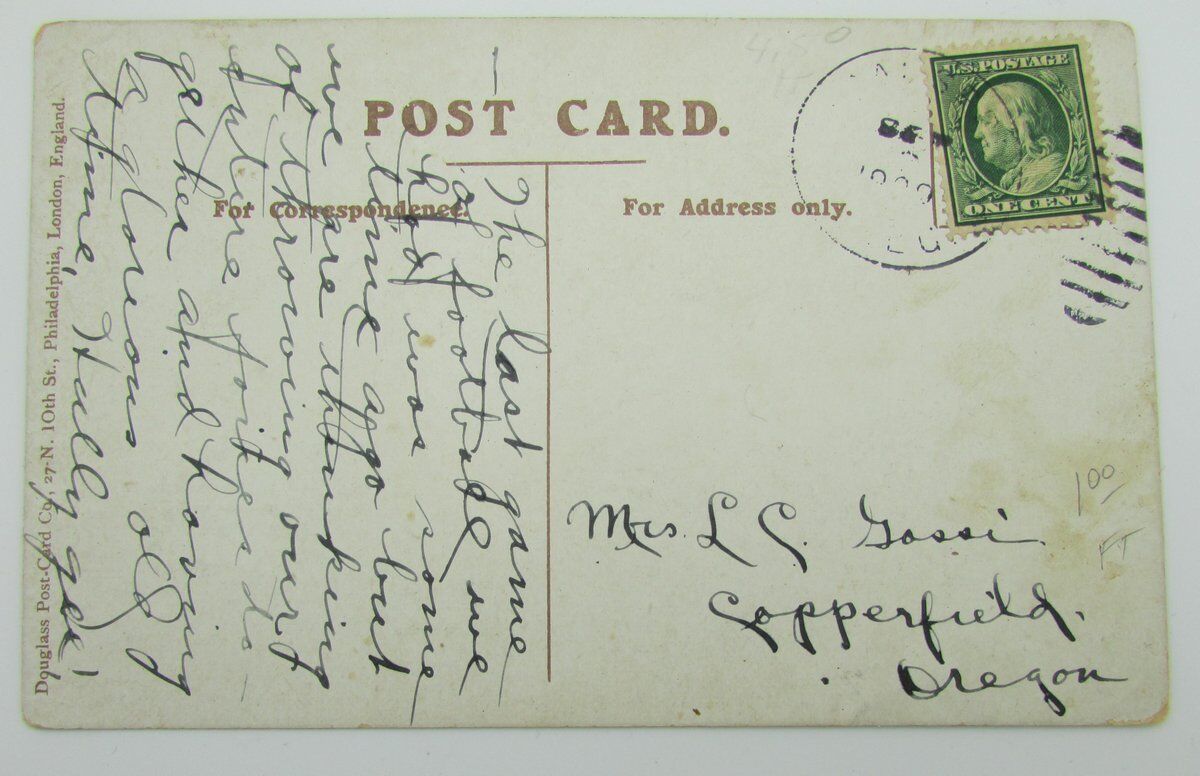 POST CARD.
For Correspondence.
For Address only.
U.S. POSTAGE
ONE CENT
The last game
of football we
had was some
time ago but
we are thinking
of throwing our
future forites to-
gether and having
a glorious old
time, Hully gee!
Mrs. L. C.
Copperfield,
Oregon
1 00
FT
4,50
Douglass Post-Card Co., 27-N. 10th St., Philadelphia, London, England.